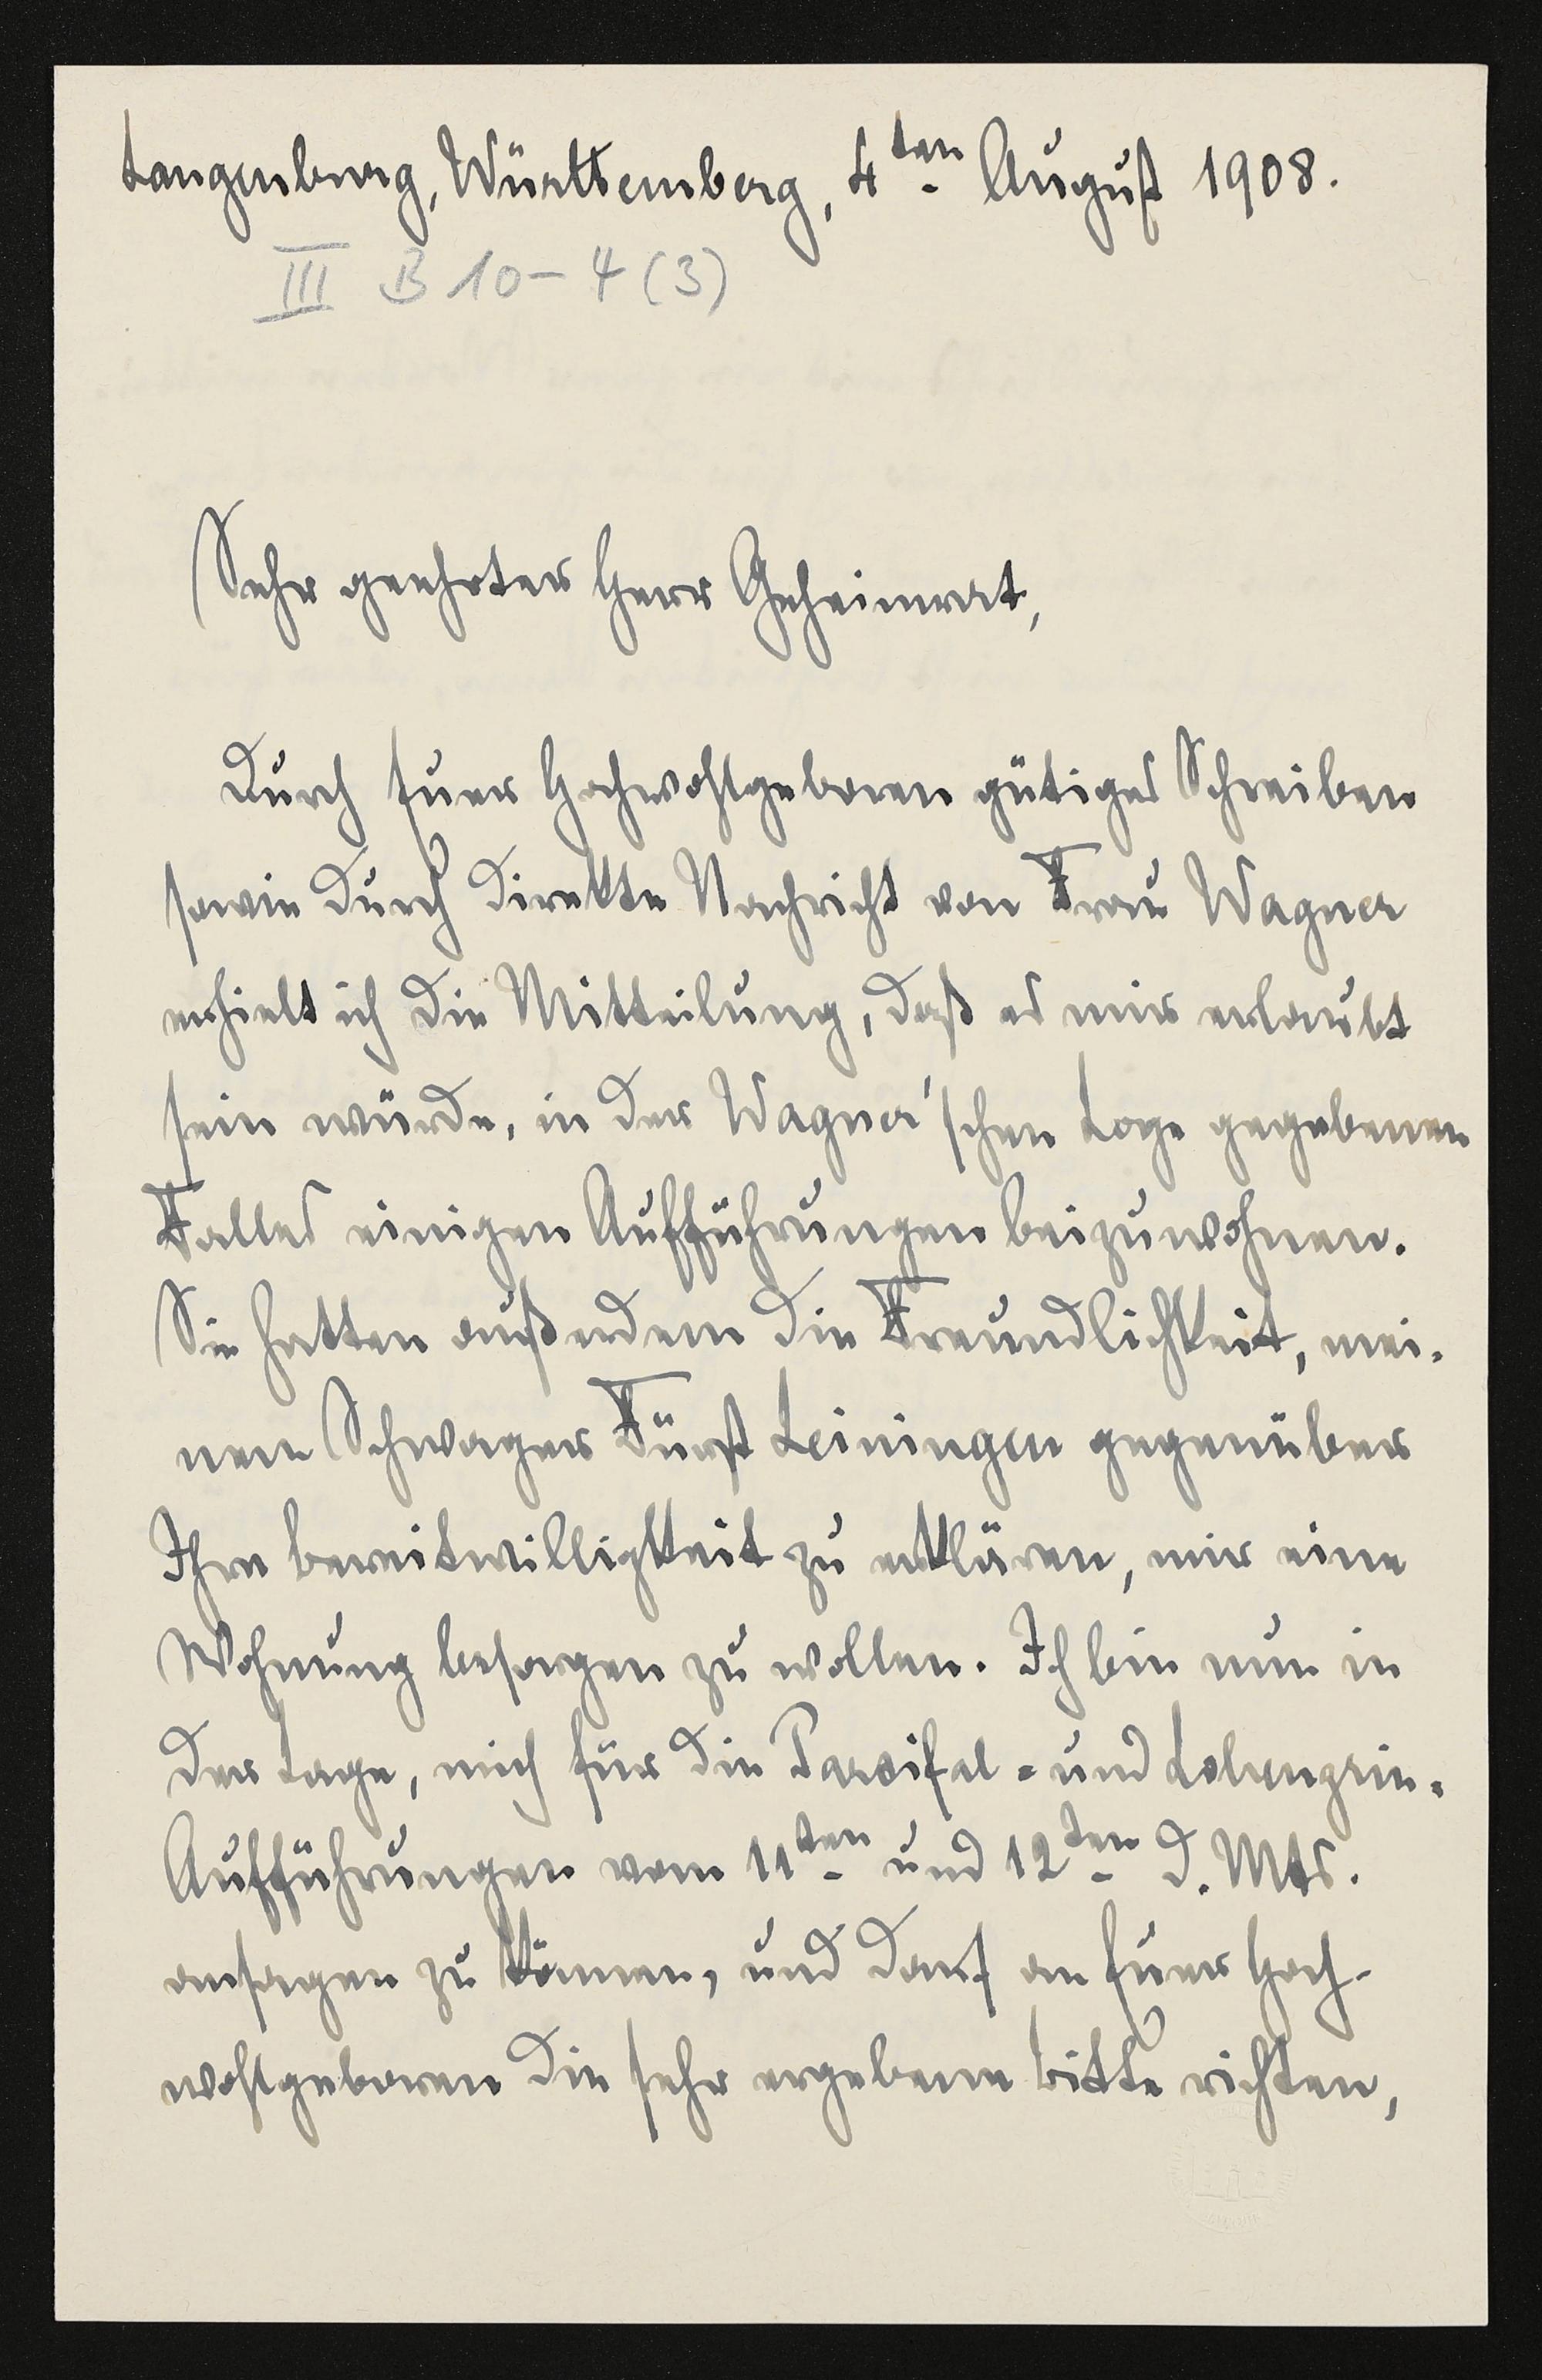 Langenburg, Württemberg, 4ten August 1908.
III B 10-4 (3)
Sehr geehrter Herr Geheimrat,
Durch Euer Hochwohlgeboren gütiges Schreiben
sowie durch direkte Nachricht von Frau Wagner
erhielt ich die Mitteilung, daß es mir erlaubt
sein würde, in der Wagner'schen Loge gegebenen
Falles einigen Aufführungen beizuwohnen.
Sie hatten außerdem die Freundlichkeit, mei-
nem Schwager Fürst Leiningen gegenüber
Ihre Bereitwilligkeit zu erklären, mir eine
Wohnung besorgen zu wollen. Ich bin nun in
der Lage, mich für die Parsifal- und Lohengrin-
Aufführungen vom 11ten und 12ten d. Mts.
ansagen zu können, und darf an Euer Hoch-
wohlgeboren die sehr ergebene Bitte richten,